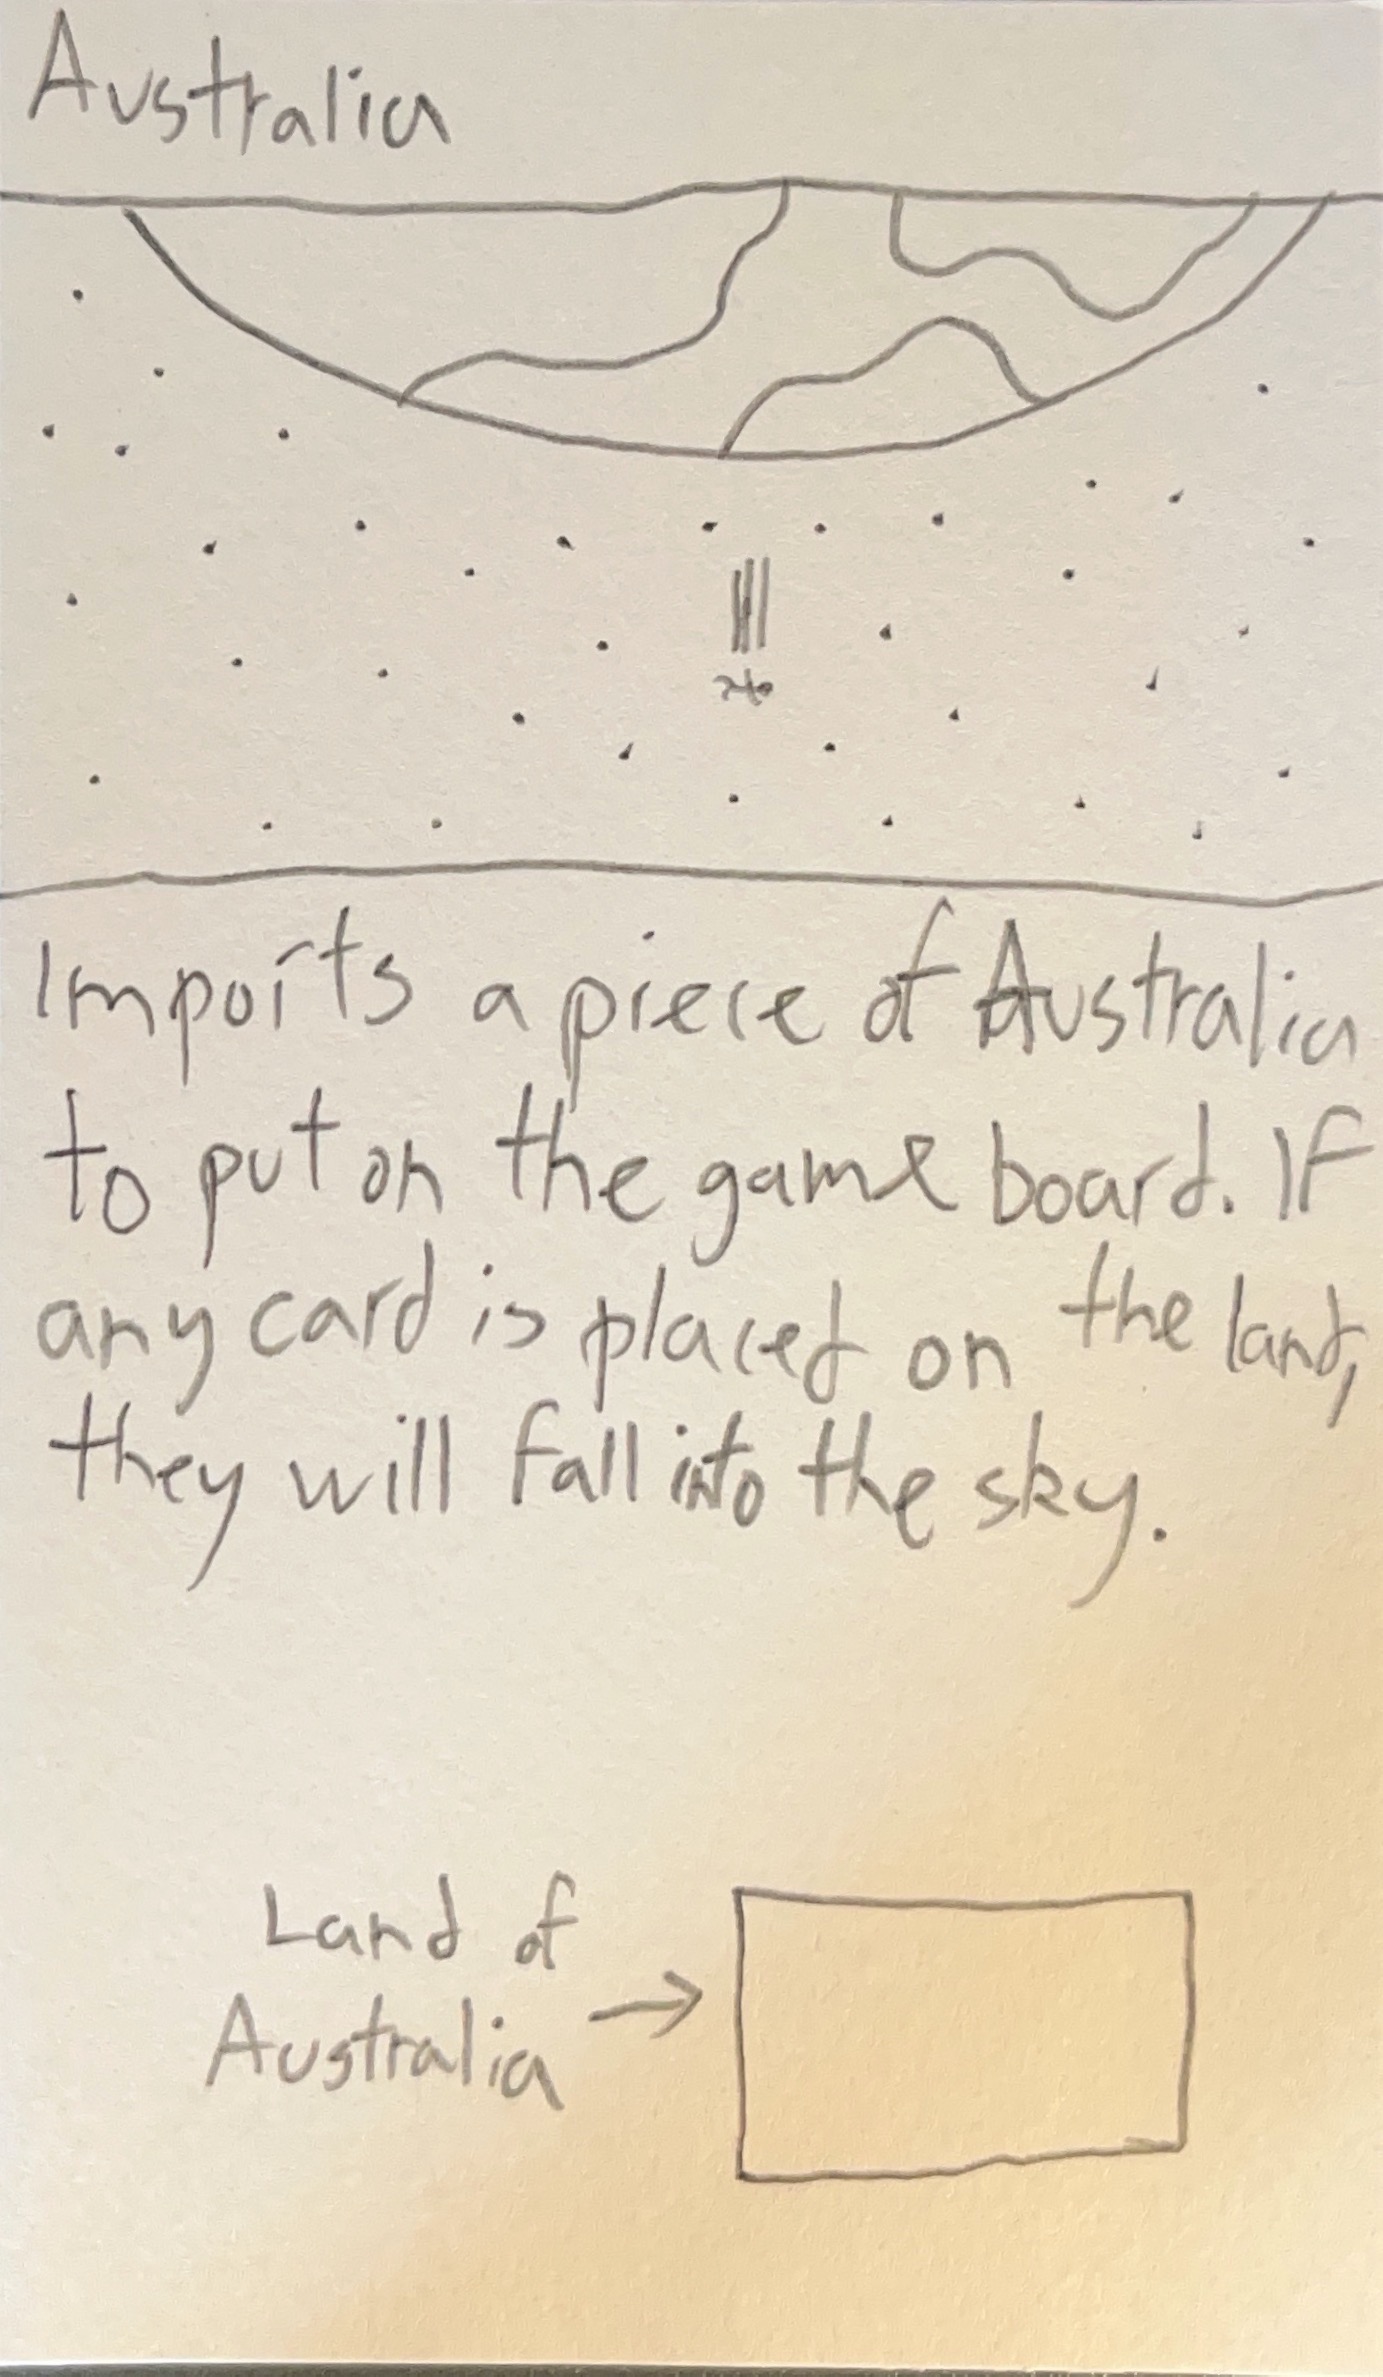 Australia
Imports a piece of Australia
to put on the game board. If
any card is placed on the land,
they will fall into the sky.
Land of
Australia